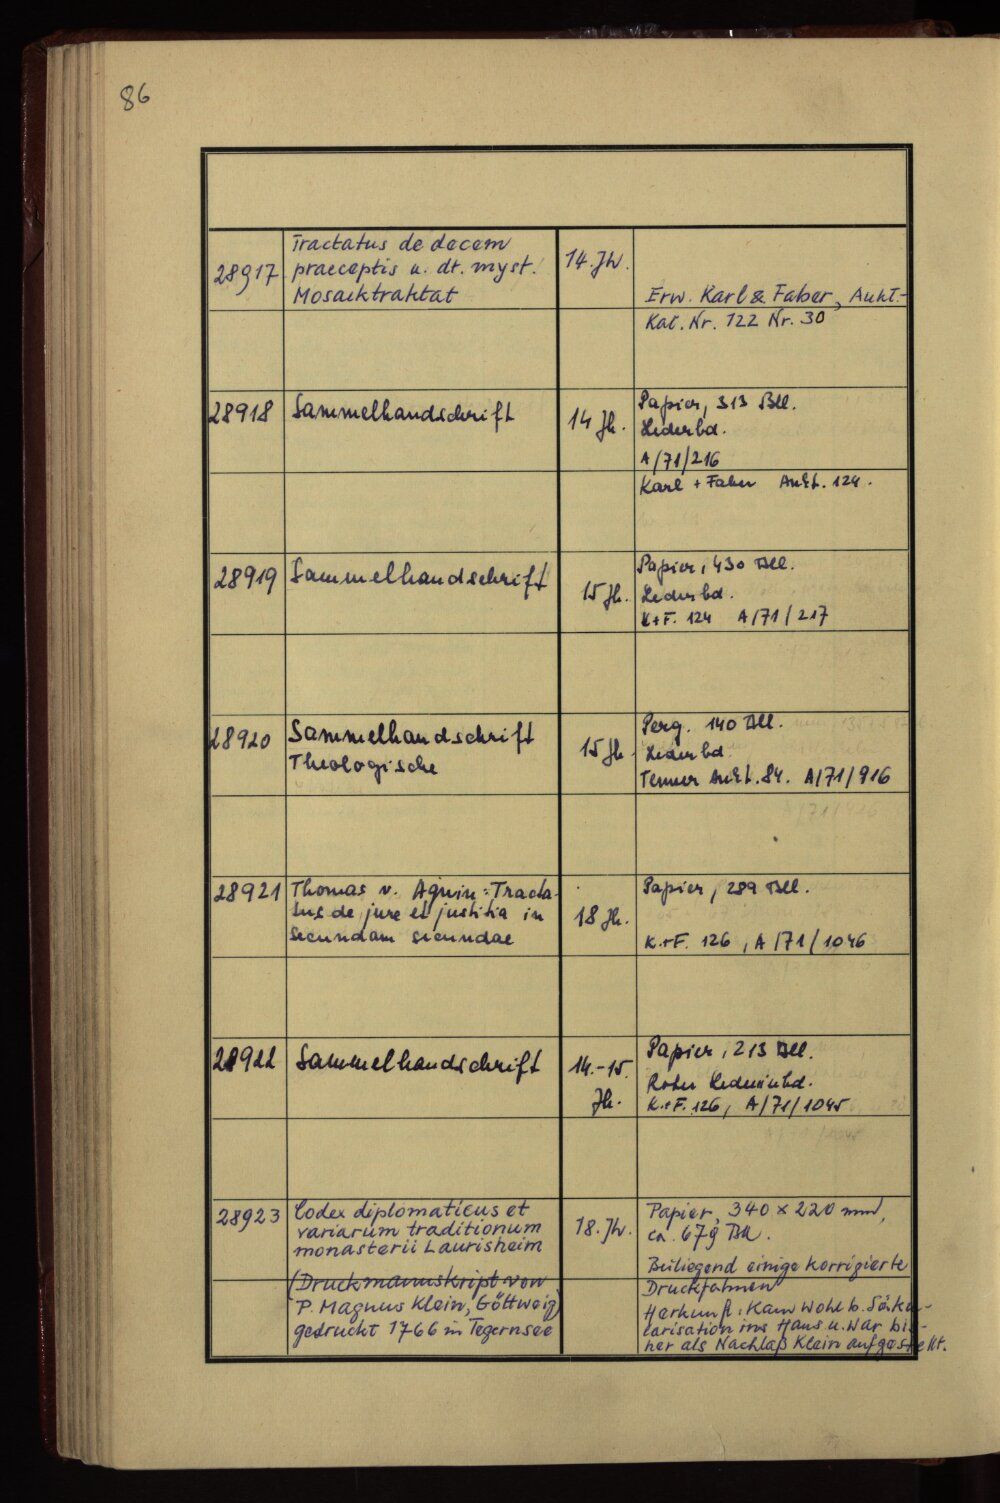 86
28917
Tractatus de decem
praeceptis u. dt. myst.
Mosaiktraktat
14. Jh.
Erw. Karl & Faber, Aukt.-
Kat. Nr. 122 Nr. 30
28918
Sammelhandschrift
14 Jh.
Papier, 313 Bll.
Lederbd.
A/71/216
Karl + Faber Aukt. 124.
28919
Sammelhandschrift
15 Jh.
Papier, 430 Bll.
Lederbd.
K+F. 124 A/71/217
28920
Sammelhandschrift
Theologische
15 Jh.
Perg. 140 Bll.
Lederbd.
Tenner Aukt. 84. A/71/916
28921
Thomas v. Aquin: Tracta-
tus de jure et justitia in
secundam secundae
18 Jh.
Papier, 289 Bll.
K.+F. 126, A/71/1046
28922
Sammelhandschrift
14.-15.
Jh.
Papier, 213 Bll.
Roter Ledereinbd.
K.+F. 126, A/71/1045
28923
Codex diplomaticus et
variarum traditionum
monasterii Laurisheim
(Druckmanuskript von
P. Magnus Klein, Göttweig)
gedruckt 1766 in Tegernsee
18. Jh.
Papier, 340 × 220 mm,
ca. 679 Bll.
Beiliegend einige korrigierte
Druckfahnen
Herkunft: Kam wohl b. Säku-
larisation ins Haus u. war bis-
her als Nachlaß Klein aufgestellt.